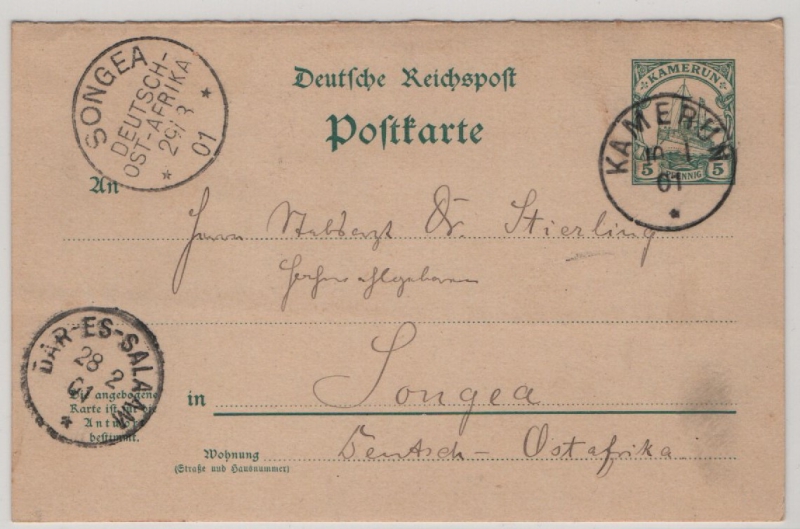 SONGEA
DEUTSCH-
OST-AFRIKA
29/3
01
Deutsche Reichspost
Postkarte
KAMERUN
5 PFENNIG 5
KAMERUN
1
01
An
Herrn Stabsarzt Dr. Stierling
Hochwohlgeboren
DAR-ES-SALAAM
28 2
01
Die angebogene
Karte ist für die
Antwort
bestimmt.
in Songea
Wohnung Deutsch-Ostafrika.
(Straße und Hausnummer)